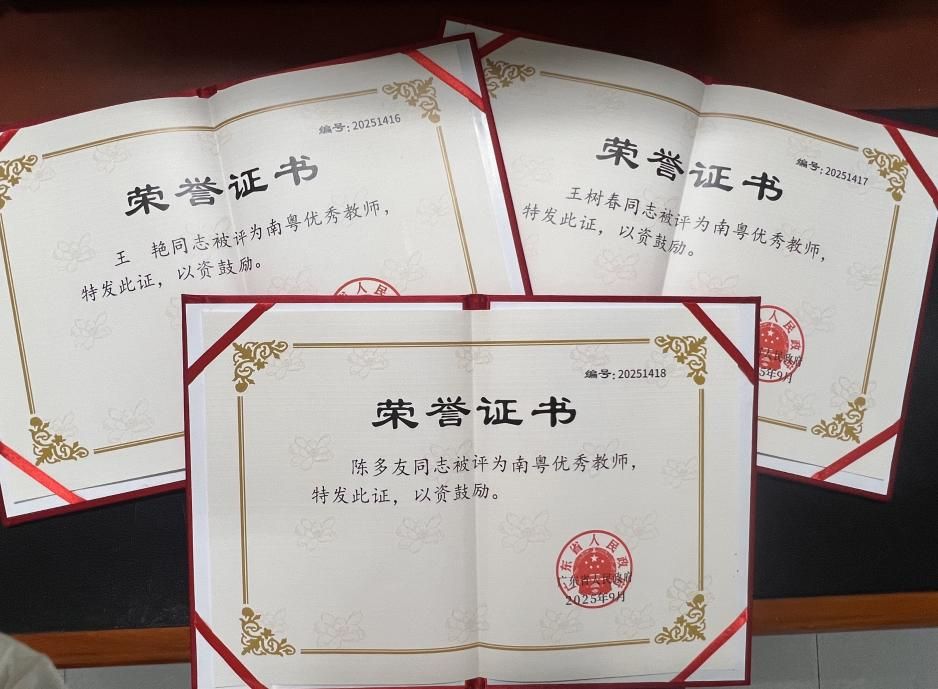 编号:20251416
荣誉证书
王　艳同志被评为南粤优秀教师,
特发此证，以资鼓励。
省人民
编号:20251417
荣誉证书
王树春同志被评为南粤优秀教师,
特发此证，以资鼓励。
人民政
人民政府
5年9月
编号:20251418
荣誉证书
陈多友同志被评为南粤优秀教师,
特发此证，以资鼓励。
广东省人民政府
广东省人民政府
2025年9月